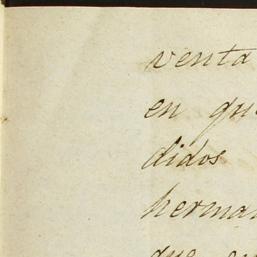 venta
en que
didos
herman
que